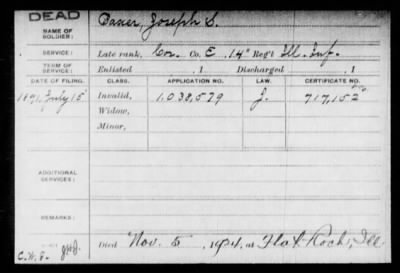 DEAD
NAME OF SOLDIER: Baker, Joseph S.
SERVICE: Late rank, Cor. Co. E, 14" Reg't Ill. Inf.
TERM OF SERVICE: Enlisted , 1 Discharged , 1
DATE OF FILING. CLASS. APPLICATION NO. LAW. CERTIFICATE NO.
1891, July 15 Invalid, 1.038,579 J. 717,152
Widow,
Minor,
ADDITIONAL SERVICES:
REMARKS:
C.W.F.
Died Nov. 5, 1924, at Flat Rock, Ill